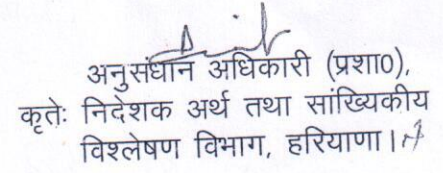 अनुसंधान अधिकारी (प्रशा0),
कृतेः निदेशक अर्थ तथा सांख्यिकीय
विश्लेषण विभाग, हरियाणा।